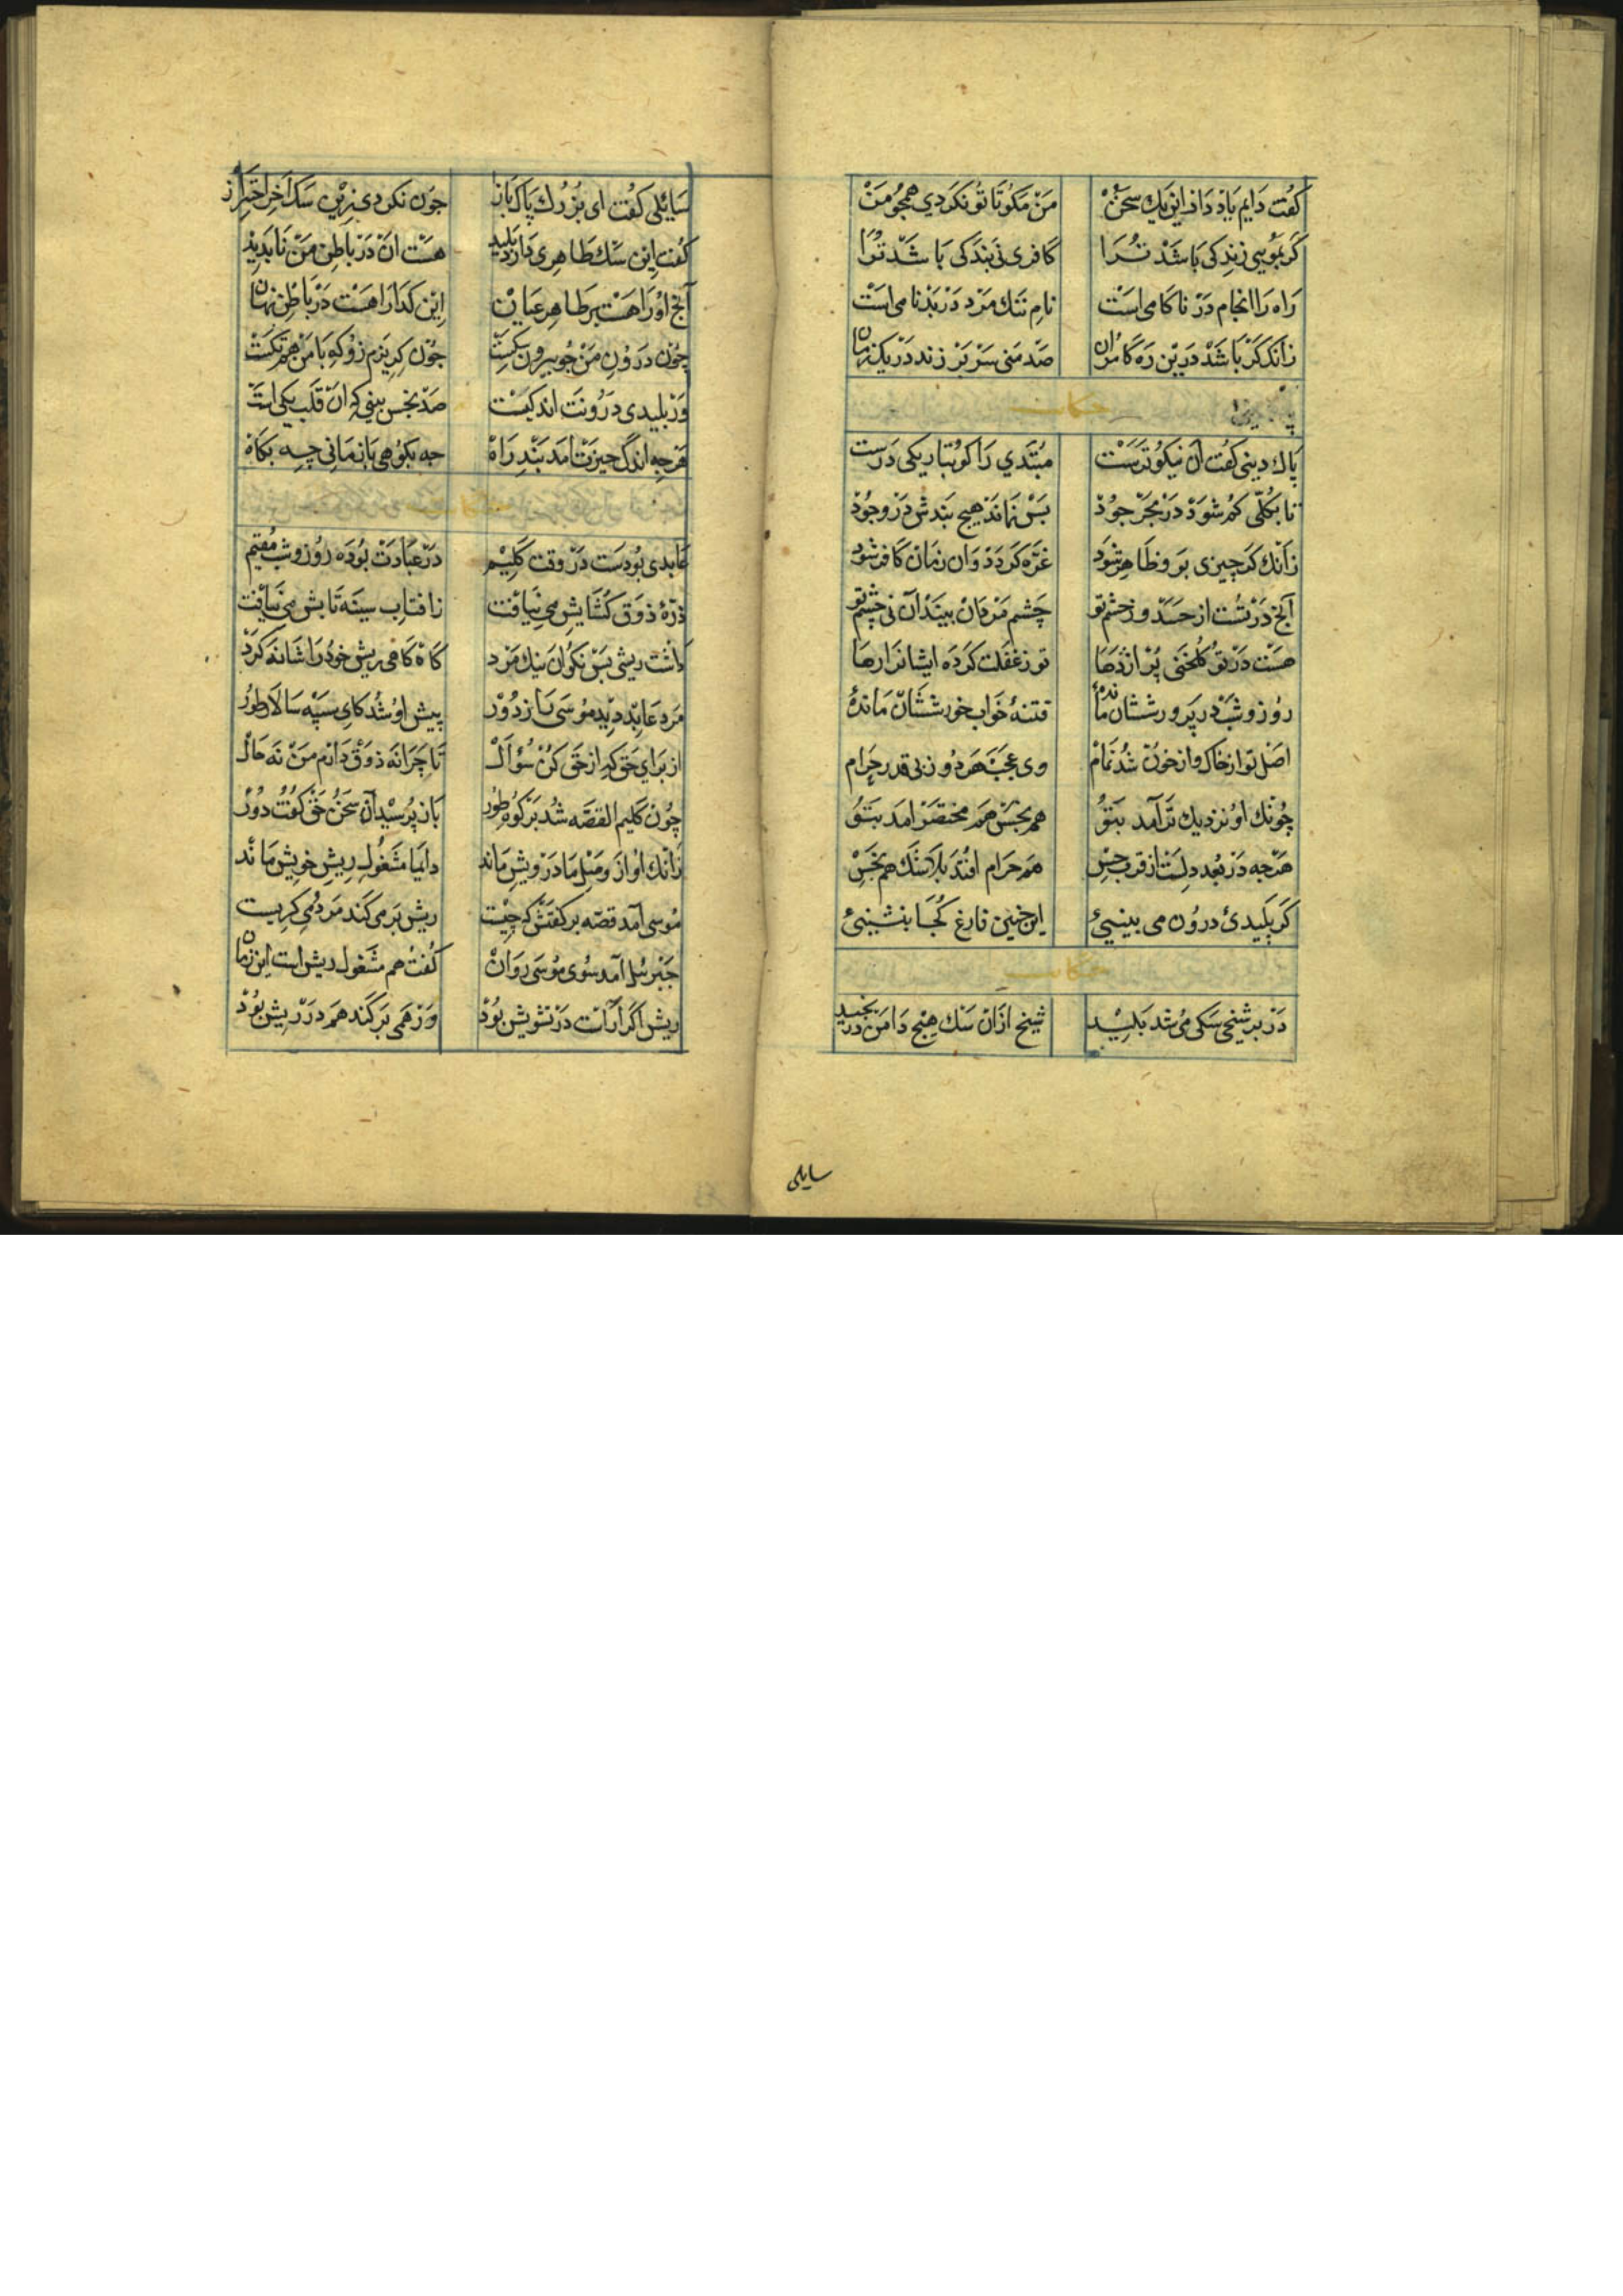 کفت دایم یاذ داذ این یک سخن من مکو تا تو نکردی همچو من
کر بموی زندکی باشد ترا کافری نی بندکی باشد ترا
راه را انجام در ناکامی است نام نیک مرد در بدنامی است
زانک کر باشد درین ره کامران صد منی سر بر زند در یک زمان
حکایت
پاک دینی کفت آن نیکوترست مبتدی را کو بتاریکی درست
تا بکلی کم شود در بحر جوذ پس نماند هیچ بندش در وجوذ
زانک کر چیزی برو ظاهر شود غره کردد وان زمان کافر شود
آنچ در تست از حسد وز خشم تو چشم مردمان بیند آن نی چشم تو
هست در تو کلخنی پر اژدها تو ز غفلت کرده ایشانرا رها
روز و شب در پرورششان ماندهٔ فتنهٔ خواب خورششان ماندهٔ
اصل تو از خاک و از خون شد تمام وی عجب هر دو ز بی قدر حرام
چونک او نزدیک تر آمد بتو هم نجس هم مختصر امد بتو
هرچه در بعد دلست از قرب حس هم حرام افتد بلا شک هم نجس
کر پلیدیٔ درون می بینیئ این چنین فارغ کجا بنشینیئ
حکایت
در بر شیخی سکی می شد پلید شیخ ازان سک هیچ دامن در نچید
سایلی
سائلی کفت ای بزرک پاک باز چون نکردی زین سک آخر احتراز
کفت این سک ظاهری دارد پلید هست ان در باطن من ناپدید
آنچ او را هست بر ظاهر عیان این کدا را هست در باطن نهان
چون درون من چو بیرون سکست چون کریزم زو که با من هم تکست
ور پلیدی درونت اندکیست صد نجس بینی که ان قلب یکی است
هرچه اندک چیزت امد بند راه چه بکوهی باز مانی چه بکاه
عابدی بودست در وقت کلیم در عبادت بوده روز و شب مقیم
ذرهٔ ذوق کشایش می نیافت ز افتاب سینه تابش می نیافت
داشت ریشی بس نکو آن نیک مرد کاه کاهی ریش خود را شانه کرد
مرد عابد دید موسی را ز دور پیش او شد کای سپه سالار طور
از برای حق که از حق کن سؤال تا چرا نه ذوق دارم من نه حال
چون کلیم القصه شد بر کوه طور باز پرسید آن سخن حق کفت دور
زانک او از وصل ما درویش ماند دایما مشغول ریش خویش ماند
موسی آمد قصه بر کفتش که چیست ریش بر می کند مرد و می کریست
جبرئیل آمد سوی موسی روان کفت هم مشغول ریش است این زمان
ریش اکر اراست در تشویش بوذ ور همی بر کند هم در ریش بوذ